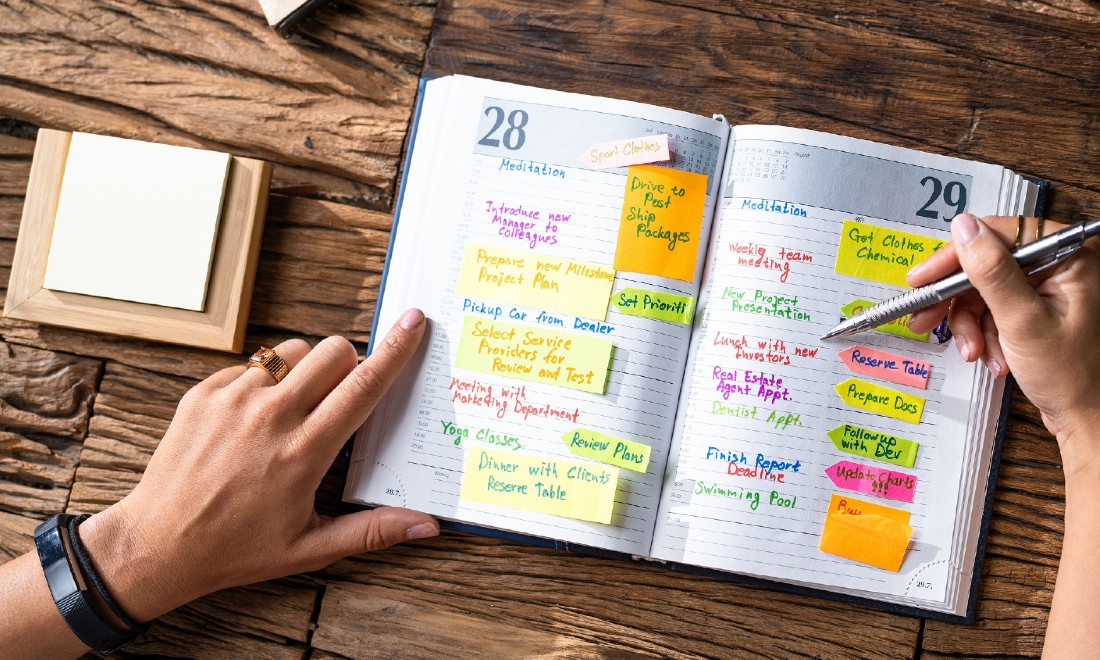 28
Sport Clothes
Meditation
Drive to
Post
Ship
Packages
Introduce new
Manager to
Colleagues
Prepare new Milestone
Project Plan
Set Prioriti
Pickup Car from Dealer
Select Service
Providers for
Review and Test
Meeting with
Marketing Department
Yoga Classes
Review Plans
Dinner with Clients
Reserve Table
28.7.
August
29
Meditation
Get Clothes f
Chemical
Weekly team
meeting
New Project
Presentation
Lunch with new
Investors
Reserve Table
Real Estate
Agent Appt.
Prepare Docs
Dentist Appt.
Follow up
with Dev
Finish Report
Deadline
Update Charts
!!!
Swimming Pool
Buy
29.7.